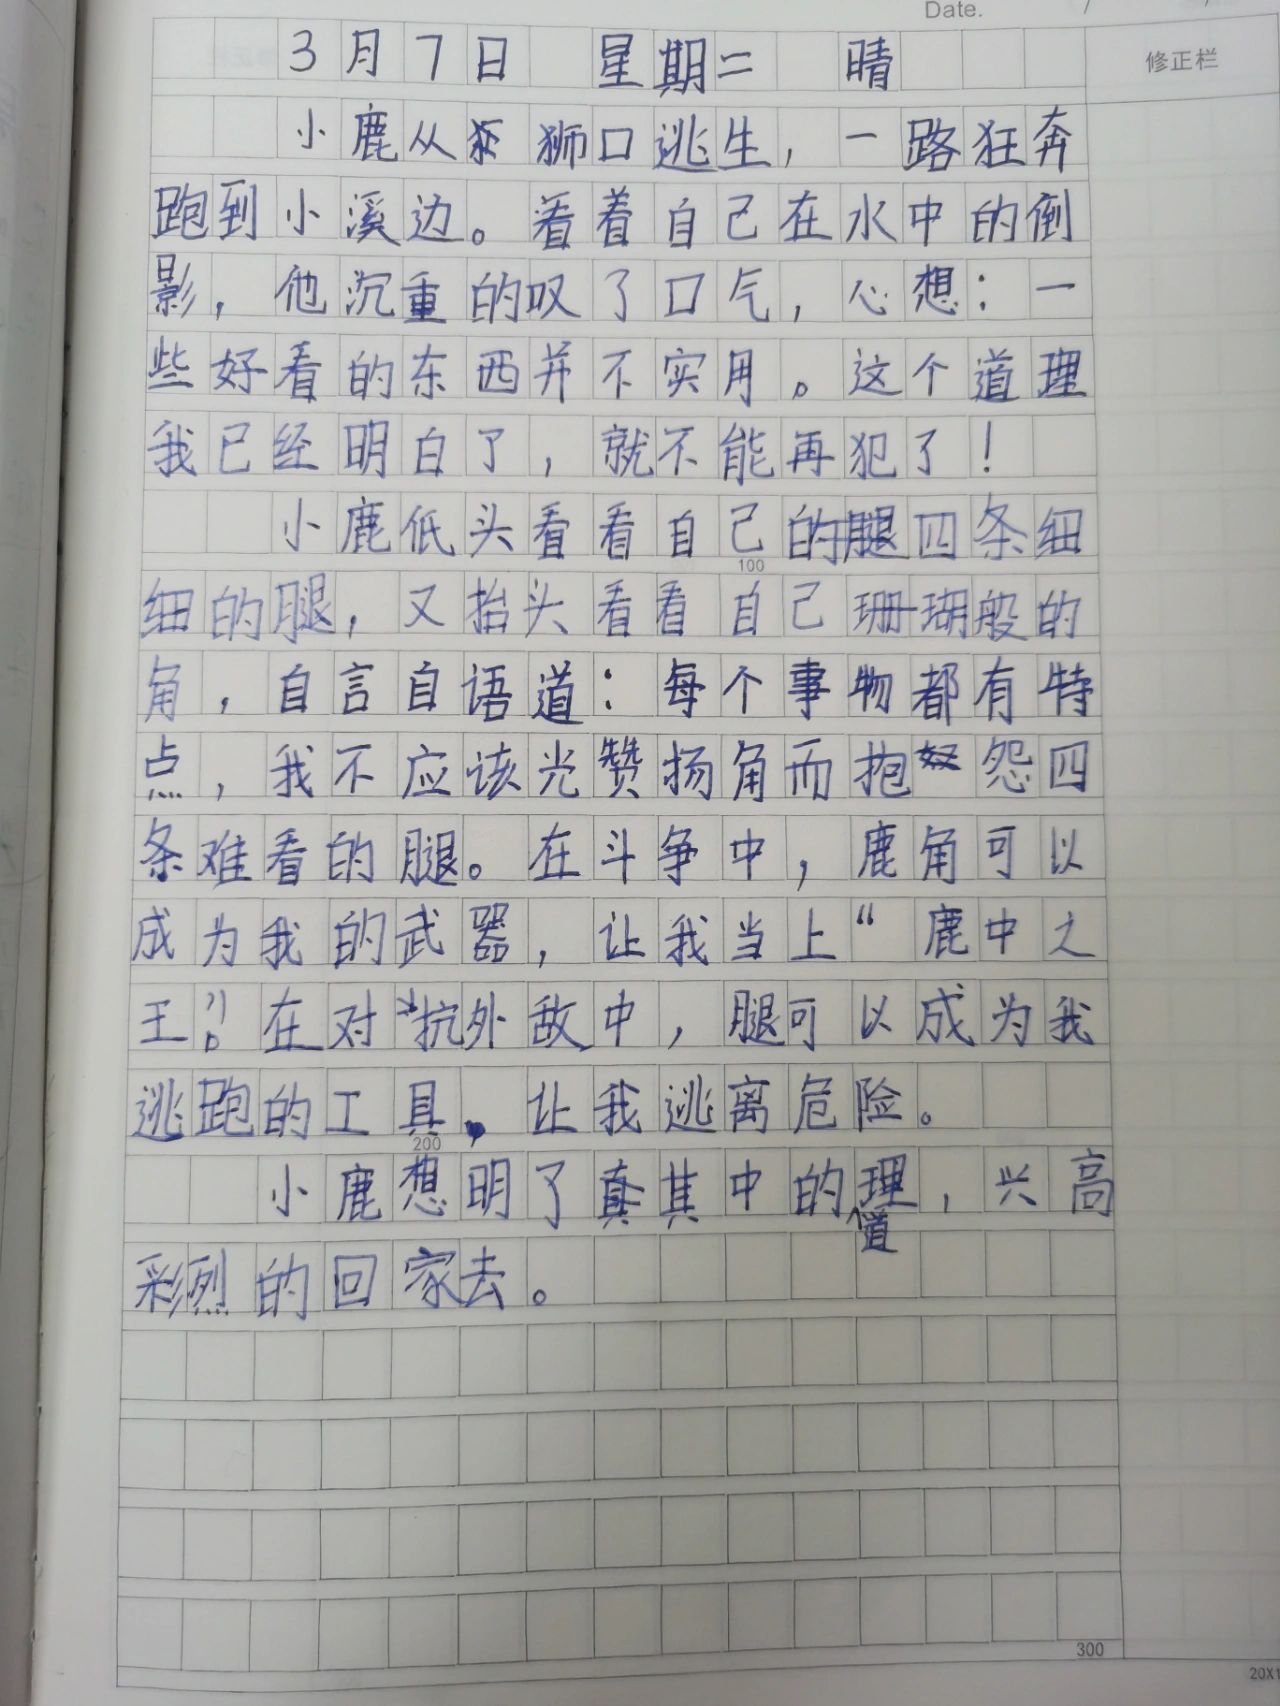 Date. / /
修正栏
3月7日 星期二 晴
小鹿从狮口逃生，一路狂奔
跑到小溪边。看着自己在水中的倒
影，他沉重的叹了口气，心想：一
些好看的东西并不实用。这个道理
我已经明白了，就不能再犯了！
小鹿低头看看自己的腿四条细
100
细的腿，又抬头看看自己珊瑚般的
角，自言自语道：每个事物都有特
点，我不应该光赞扬角而抱怨四
条难看的腿。在斗争中，鹿角可以
成为我的武器，让我当上“鹿中之
王”。在对抗外敌中，腿可以成为我
逃跑的工具，让我逃离危险。
200
小鹿想明了真其中的道理，兴高
彩烈的回家去。
300
20X1